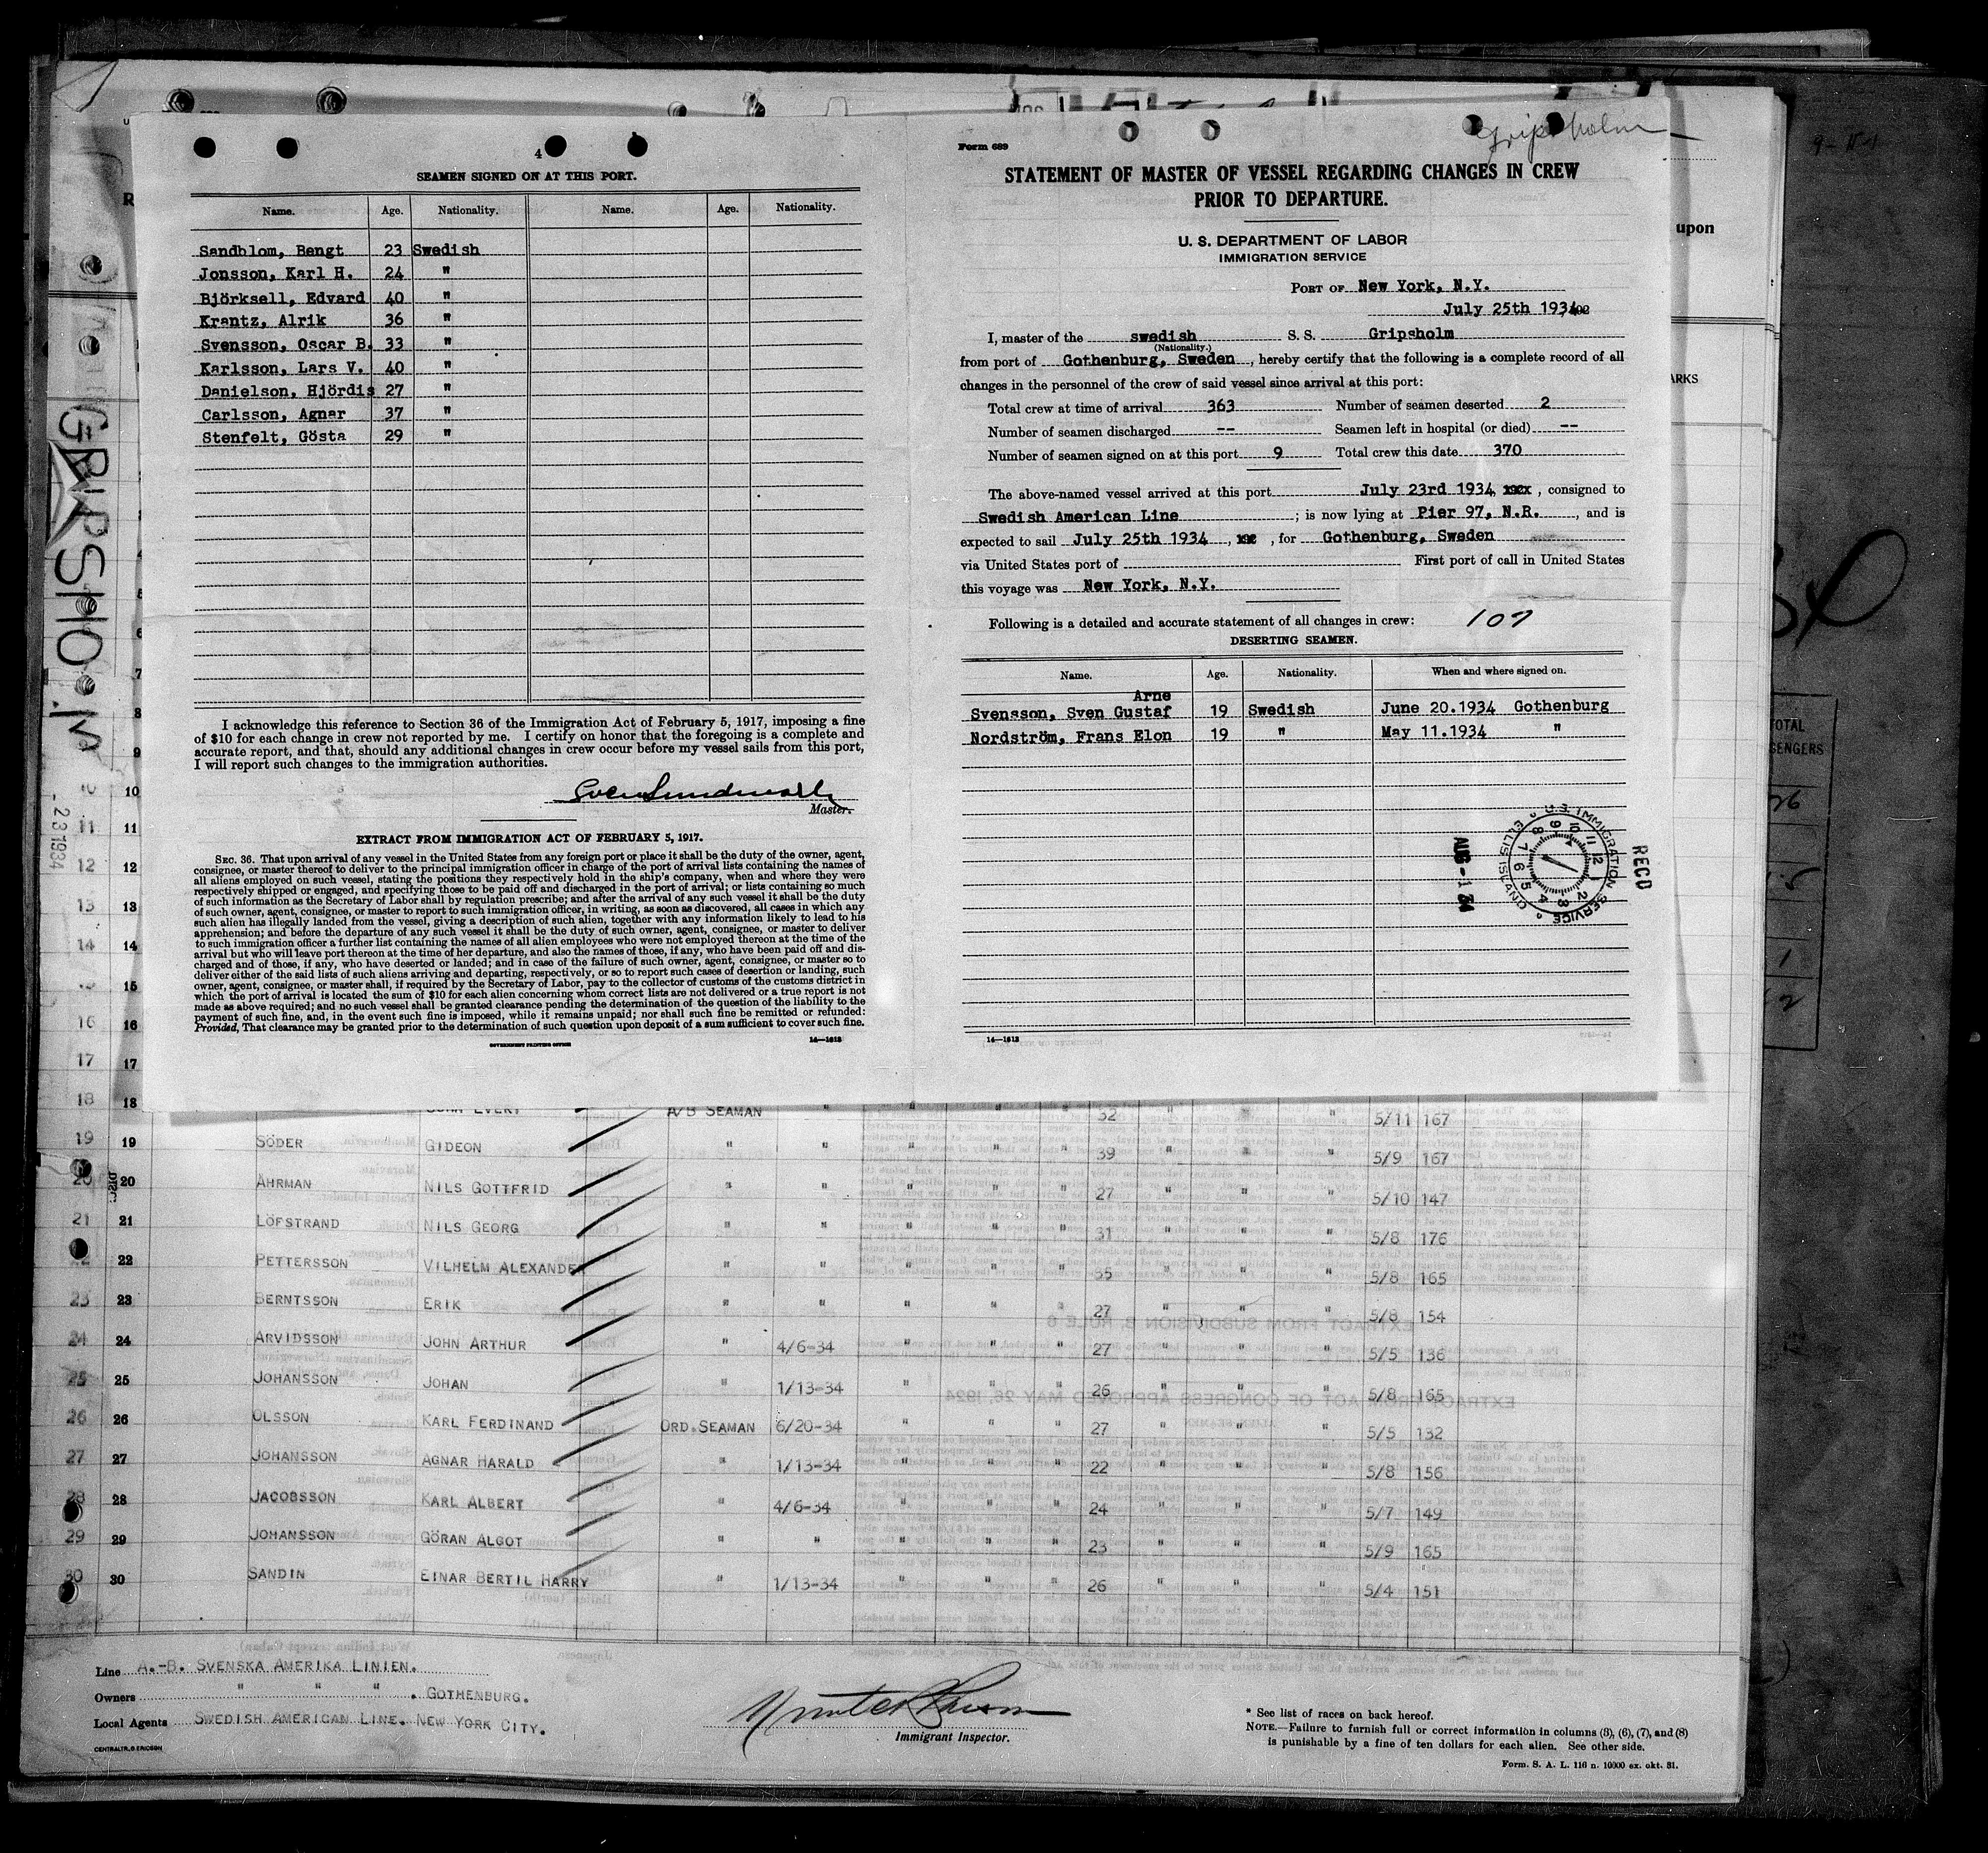 4
SEAMEN SIGNED ON AT THIS PORT.
Name. Age. Nationality. Name. Age. Nationality.
Sandblom, Bengt 23 Swedish
Jonsson, Karl H. 24 "
Björksell, Edvard 40 "
Krantz, Alrik 36 "
Svensson, Oscar B. 33 "
Karlsson, Lars V. 40 "
Danielson, Hjördis 27 "
Carlsson, Agnar 37 "
Stenfelt, Gösta 29 "
I acknowledge this reference to Section 36 of the Immigration Act of February 5, 1917, imposing a fine
of $10 for each change in crew not reported by me. I certify on honor that the foregoing is a complete and
accurate report, and that, should any additional changes in crew occur before my vessel sails from this port,
I will report such changes to the immigration authorities.
Master.
EXTRACT FROM IMMIGRATION ACT OF FEBRUARY 5, 1917.
SEC. 36. That upon arrival of any vessel in the United States from any foreign port or place it shall be the duty of the owner, agent,
consignee, or master thereof to deliver to the principal immigration officer in charge of the port of arrival lists containing the names of
all aliens employed on such vessel, stating the positions they respectively hold in the ship's company, when and where they were
respectively shipped or engaged, and specifying those to be paid off and discharged in the port of arrival; or lists containing so much
of such information as the Secretary of Labor shall by regulation prescribe; and after the arrival of any such vessel it shall be the duty
of such owner, agent, consignee, or master to report to such immigration officer, in writing, as soon as discovered, all cases in which any
such alien has illegally landed from the vessel, giving a description of such alien, together with any information likely to lead to his
apprehension; and before the departure of any such vessel it shall be the duty of such owner, agent, consignee, or master to deliver
to such immigration officer a further list containing the names of all alien employees who were not employed thereon at the time of the
arrival but who will leave port thereon at the time of her departure, and also the names of those, if any, who have been paid off and dis-
charged and of those, if any, who have deserted or landed; and in case of the failure of such owner, agent, consignee, or master so to
deliver either of the said lists of such aliens arriving and departing, respectively, or so to report such cases of desertion or landing, such
owner, agent, consignee, or master shall, if required by the Secretary of Labor, pay to the collector of customs of the customs district in
which the port of arrival is located the sum of $10 for each alien concerning whom correct lists are not delivered or a true report is not
made as above required; and no such vessel shall be granted clearance pending the determination of the question of the liability to the
payment of such fine, and, in the event such fine is imposed, while it remains unpaid; nor shall such fine be remitted or refunded:
Provided, That clearance may be granted prior to the determination of such question upon deposit of a sum sufficient to cover such fine.
GOVERNMENT PRINTING OFFICE 14—1613
Form 689
Gripsholm
STATEMENT OF MASTER OF VESSEL REGARDING CHANGES IN CREW
PRIOR TO DEPARTURE.
U. S. DEPARTMENT OF LABOR
IMMIGRATION SERVICE
PORT OF New York, N.Y.
July 25th 1934
I, master of the swedish S. S. Gripsholm
(Nationality.)
from port of Gothenburg, Sweden, hereby certify that the following is a complete record of all
changes in the personnel of the crew of said vessel since arrival at this port:
Total crew at time of arrival 363 Number of seamen deserted 2
Number of seamen discharged -- Seamen left in hospital (or died) --
Number of seamen signed on at this port 9 Total crew this date 370
The above-named vessel arrived at this port July 23rd 1934, consigned to
Swedish American Line ; is now lying at Pier 97, N.R. , and is
expected to sail July 25th 1934 , for Gothenburg, Sweden
via United States port of First port of call in United States
this voyage was New York, N.Y.
Following is a detailed and accurate statement of all changes in crew: 107
DESERTING SEAMEN.
Name. Age. Nationality. When and where signed on.
Arne
Svensson, Sven Gustaf 19 Swedish June 20.1934 Gothenburg
Nordström, Frans Elon 19 " May 11.1934 "
RECD
U.S. IMMIGRATION SERVICE ELLIS ISLAND
AUG -1 34
14—1613
upon
ARKS
TOTAL
SENGERS
GRIPSHOLM
23 1934
7
8
9
10
11 11
12 12
13 13
14 14
15
16 16
17 17
18 18 A/B SEAMAN " 32 " " 5/11 167
19 19 SÖDER GIDEON " " " " " 39 " " " 5/9 167
20 20 ÅHRMAN NILS GOTTFRID " " " " " 27 " " " 5/10 147
21 21 LÖFSTRAND NILS GEORG " " " " " 31 " " " 5/8 176
22 22 PETTERSSON VILHELM ALEXANDER " " " " " 35 " " " 5/8 165
23 23 BERNTSSON ERIK " " " " " 27 " " " 5/8 154
24 24 ARVIDSSON JOHN ARTHUR " 4/6-34 " " " 27 " " " 5/5 136
25 25 JOHANSSON JOHAN " 1/13-34 " " " 26 " " " 5/8 165
26 26 OLSSON KARL FERDINAND ORD.SEAMAN 6/20-34 " " " 27 " " " 5/5 132
27 27 JOHANSSON AGNAR HARALD " 1/13-34 " " " 22 " " " 5/8 156
28 28 JACOBSSON KARL ALBERT " 4/6-34 " " " 24 " " " 5/7 149
29 29 JOHANSSON GÖRAN ALGOT " " " " " 23 " " " 5/9 165
30 30 SANDIN EINAR BERTIL HARRY " 1/13-34 " " " 26 " " " 5/4 151
Line A.-B. SVENSKA AMERIKA LINIEN.
Owners " " " . GOTHENBURG.
Local Agents SWEDISH AMERICAN LINE. NEW YORK CITY.
CENTRALTR., G. ERICSON
Immigrant Inspector.
* See list of races on back hereof.
NOTE.—Failure to furnish full or correct information in columns (3), (6), (7), and (8)
is punishable by a fine of ten dollars for each alien. See other side.
Form. S. A. L. 116 n. 10000 ex. okt. 31.